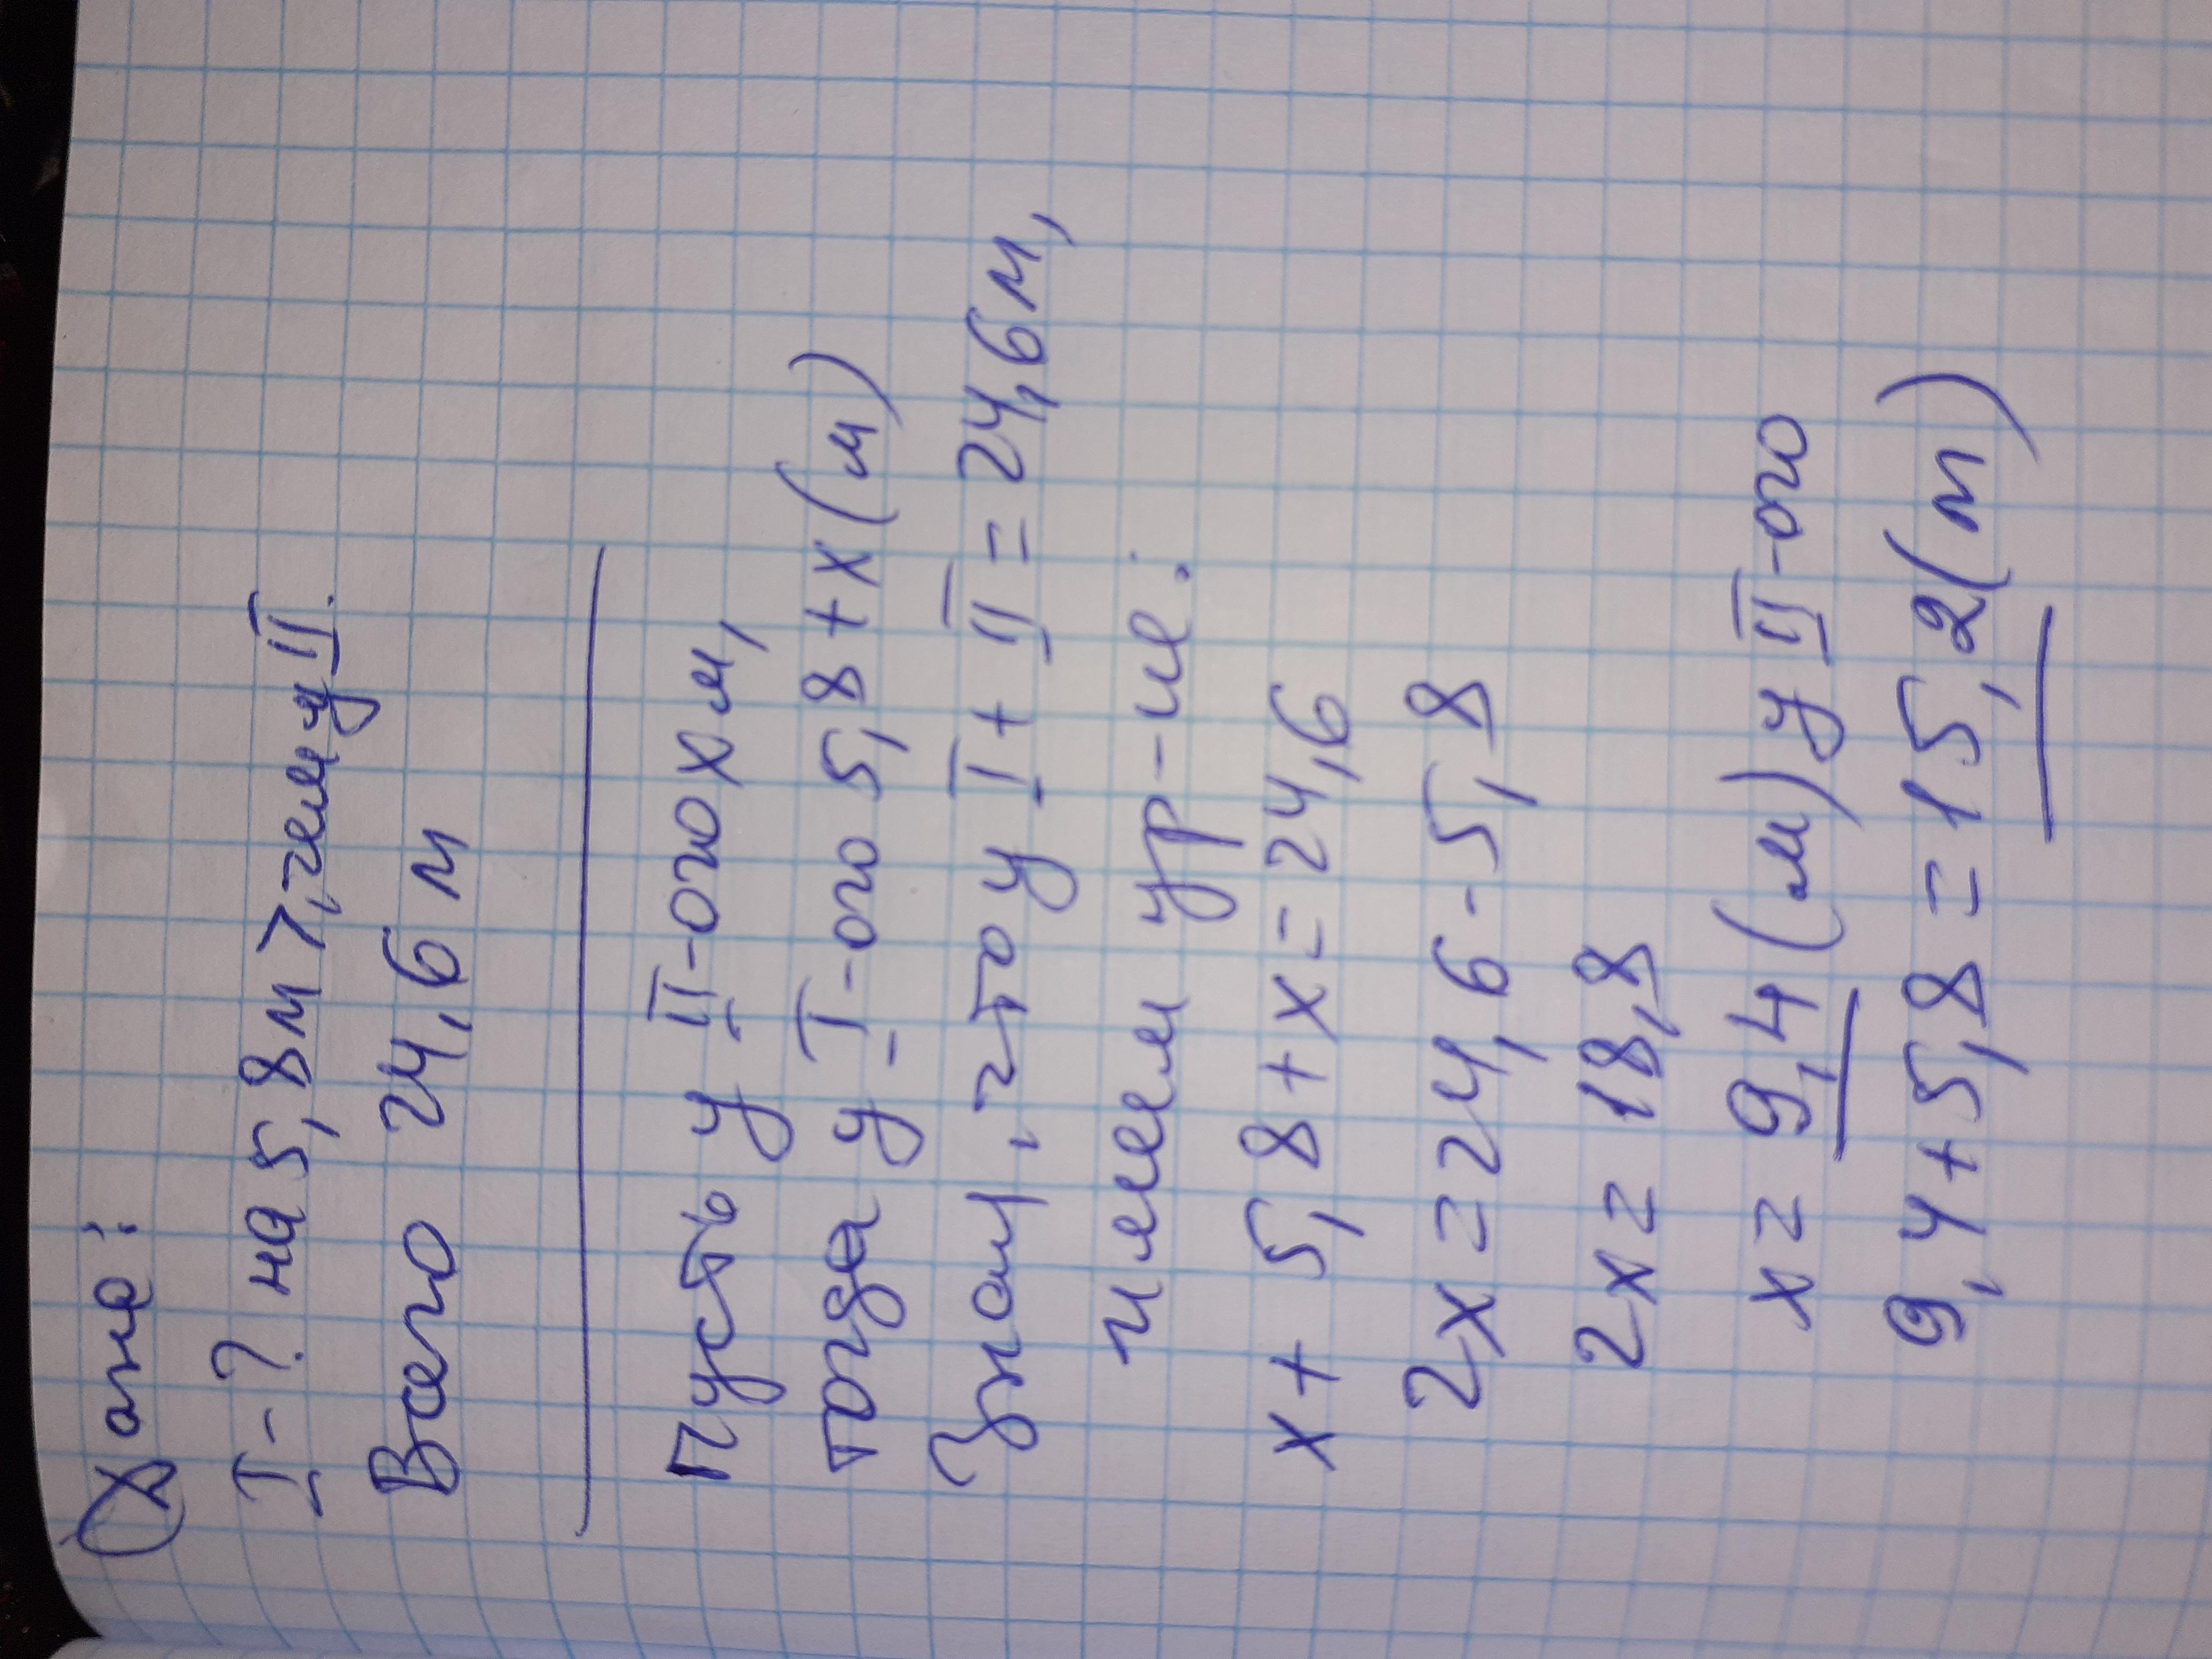 Дано:
I-? на 5,8м >, чем у II.
Всего 24,6 м
Пусть у II-ого х м,
тогда у I-ого 5,8+х (м)
Зная, что у I + II = 24,6м,
имеем ур-ие:
х+ 5,8+х=24,6
2х=24,6-5,8
2х= 18,8
х= 9,4 (м) у II-ого
9,4+5,8=15,2(м)